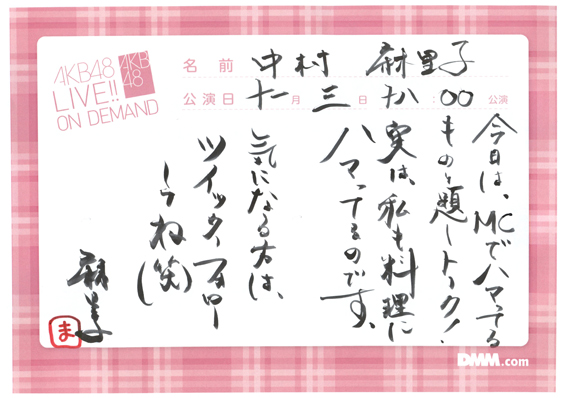 AKB48
LIVE!!
ON DEMAND
AKB
48
名前 中村 麻里子
公演日 十一月 三日 十八:00 公演
今日は、MCでハマってる
もの題しトーク!
実は、私も料理に
ハマってるのです。
気になる方は、
ツイッターフォロー
してね(笑)
ま
DMM.com